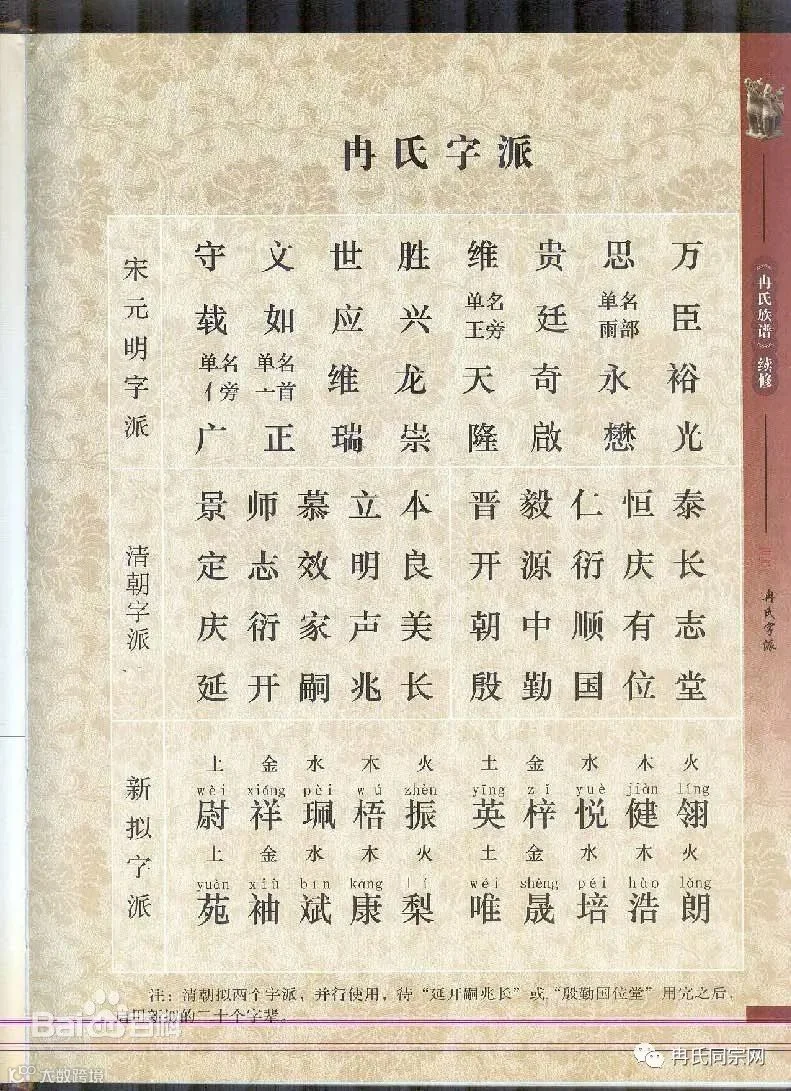 冉氏字派
宋元明字派
守 文 世 胜 维 贵 思 万
载 如 应 兴 单名王旁 廷 单名雨部 臣
单名亻旁 单名一首 维 龙 天 奇 永 裕
广 正 瑞 崇 隆 啟 懋 光
清朝字派
景 师 慕 立 本 晋 毅 仁 恒 泰
定 志 效 明 良 开 源 衍 庆 长
庆 衍 家 声 美 朝 中 顺 有 志
延 开 嗣 兆 长 殷 勤 国 位 堂
新拟字派
土 金 水 木 火 土 金 水 木 火
wèi xióng pèi wú zhèn yīng zǐ yuè jiàn líng
尉 祥 珮 梧 振 英 梓 悦 健 翎
土 金 水 木 火 土 金 水 木 火
yuàn xiù bīn kāng lí wéi shèng péi hào lǎng
苑 袖 斌 康 梨 唯 晟 培 浩 朗
注：清朝拟两个字派，并行使用，待“延开嗣兆长”或“殷勤国位堂”用完之后，
启用新拟的二十个字辈。
《冉氏族谱》续修
冉氏字派
Bai百科
大数跨境
冉氏同宗网